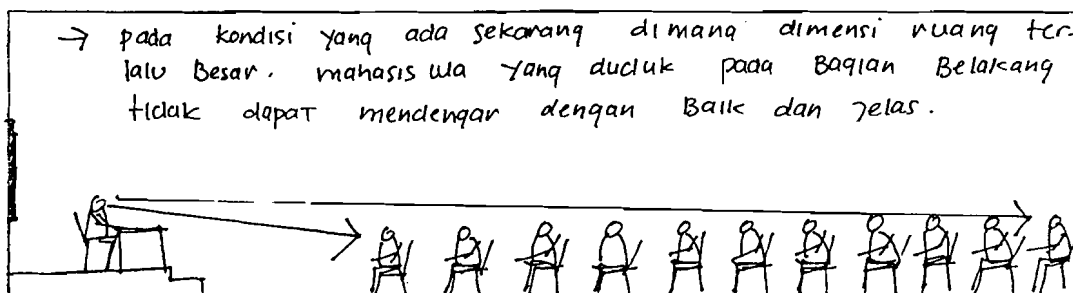 → pada kondisi yang ada sekarang dimana dimensi ruang ter-
lalu Besar. mahasiswa yang duduk pada Bagian Belakang
tidak dapat mendengar dengan Baik dan jelas.